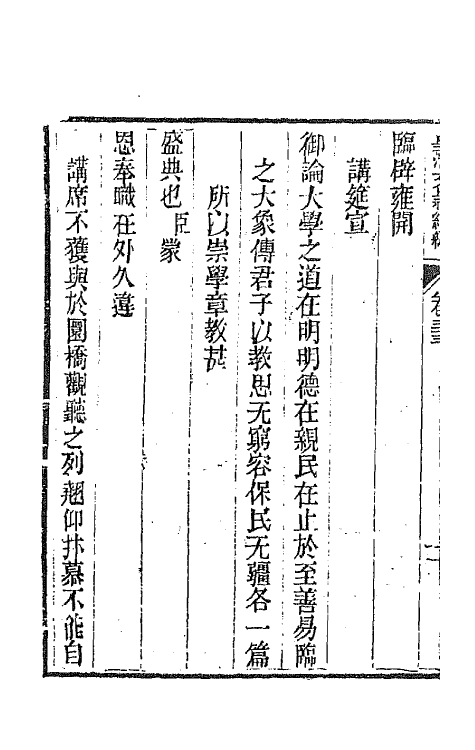 臨辟雍開
講筵宣
御論大學之道在明明德在親民在止於至善易臨
之大象傳君子以教思无窮容保民无疆各一篇
所以崇學章教甚
盛典也臣蒙
恩奉職在外久違
講席不獲與於圜橋觀聽之列翹仰抃慕不能自